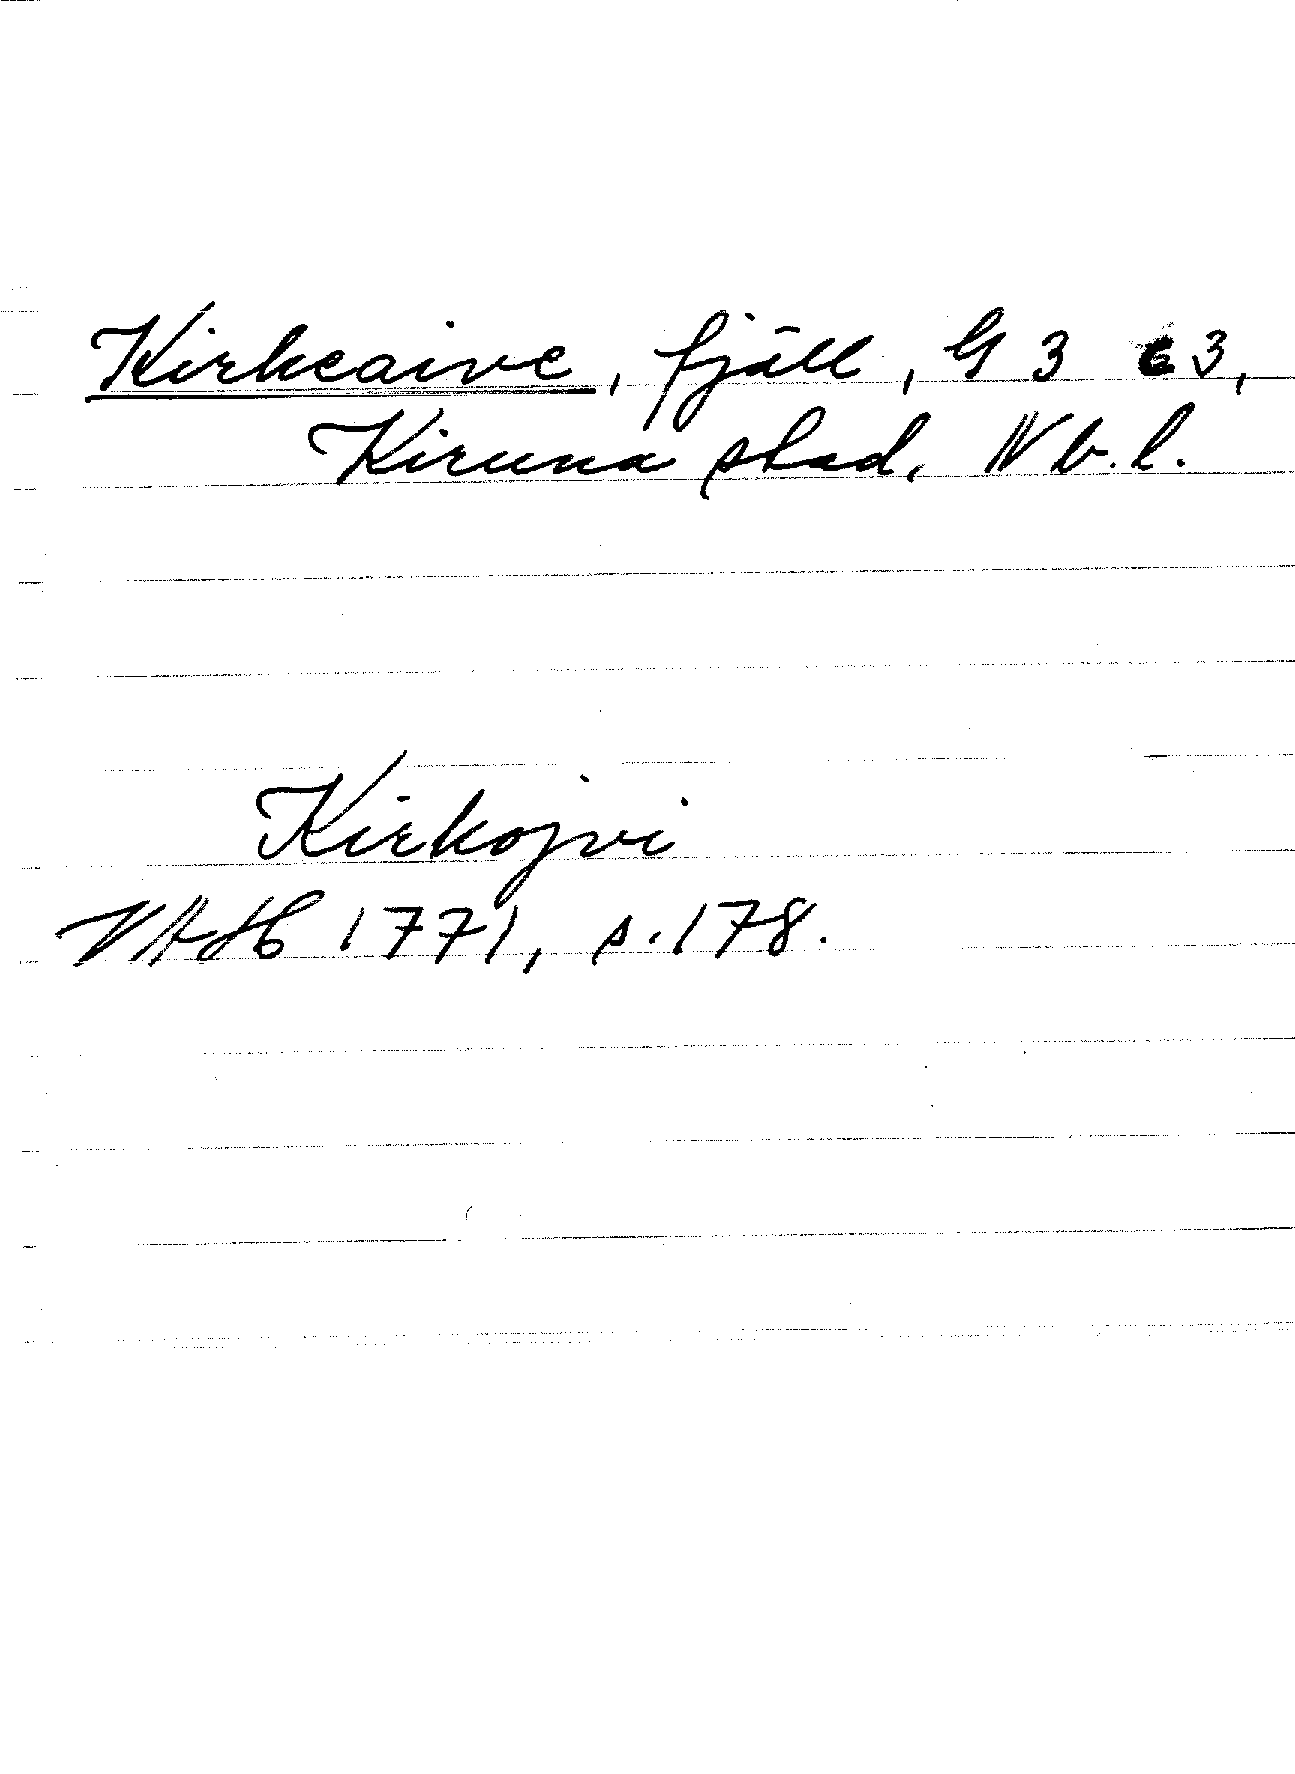 Kirkeaive, fjäll, G 3 c 3,
Kiruna stad, Nb.l.
Kirkojvi
VAH 1771, s. 178.